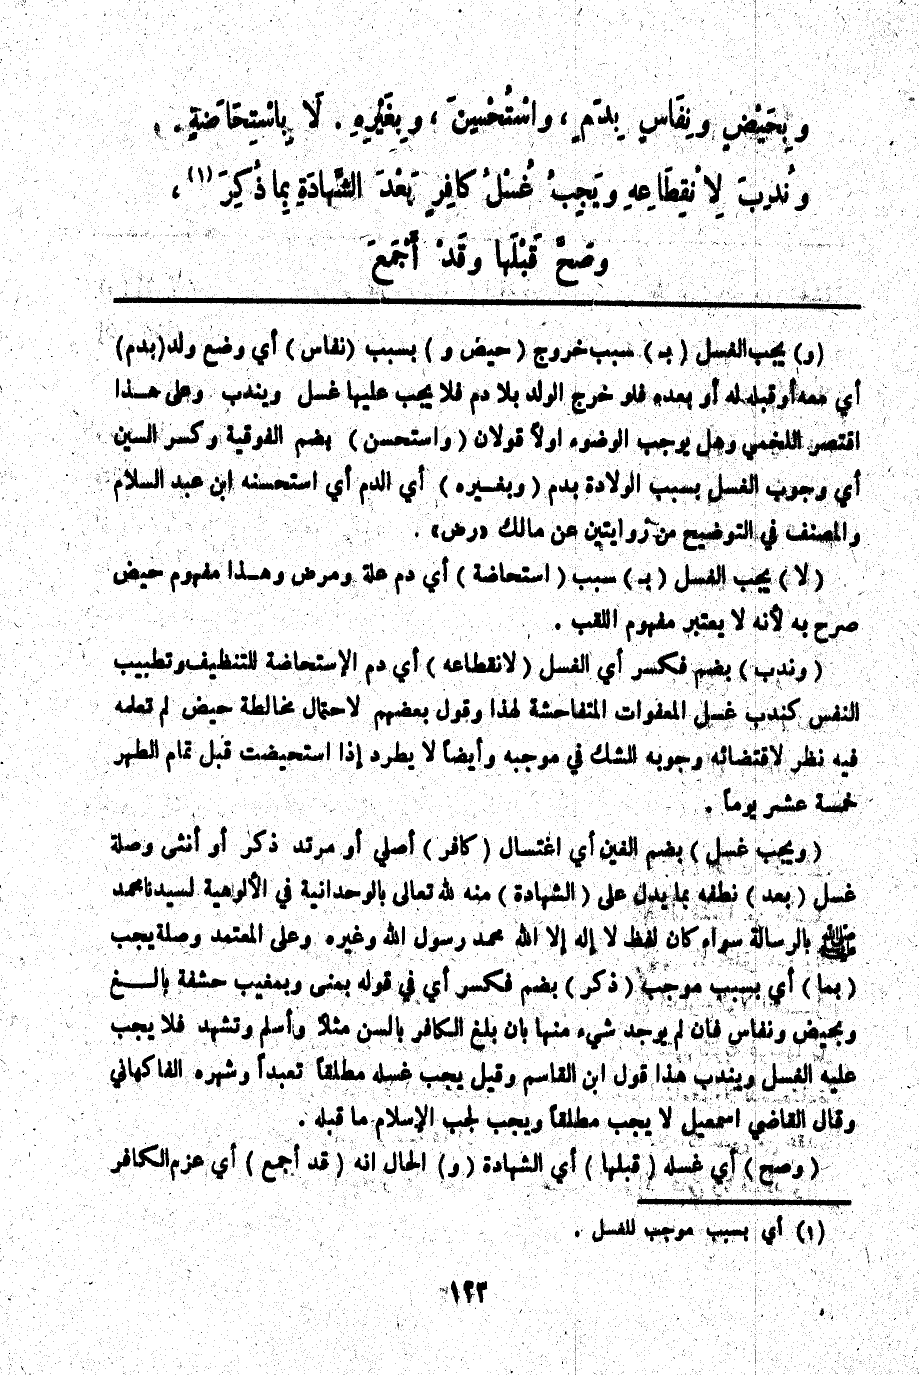 وبِحَيْضٍ ونِفَاسٍ بِدَمٍ ، واسْتُحْسِنَ ، وبِغَيْرِهِ . لَا بِاسْتِحَاضَةٍ .
ونُدِبَ لِانْقِطَاعِهِ ويَجِبُ غُسْلُ كافِرٍ بَعْدَ الشَّهادَةِ بِما ذُكِرَ (١) ،
وصَحَّ قَبْلَها وقَدْ أَجْمَعَ
(و) يجب الغسل ( بـ ) سبب خروج ( حيض و ) بسبب (نفاس ) أي وضع ولد (بدم)
أي معه أو قبله له أو بعده فلو خرج الولد بلا دم فلا يجب عليها غسل ويندب وعلى هـذا
اقتصر اللخمي وهل يوجب الوضوء اولاً قولان ( واستحسن ) بضم الفوقية وكسر السين
أي وجوب الغسل بسبب الولادة بدم ( وبغـيره ) أي الدم أي استحسنه ابن عبد السلام
والمصنف في التوضيح من روايتين عن مالك «رض» .
( لا ) يجب الغسل ( بـ ) سبب ( استحاضة ) أي دم علة ومرض وهـذا مفهوم حيض
صرح به لأنه لا يعتبر مفهوم اللقب .
( وندب ) بضم فكسر أي الغسل ( لانقطاعه ) أي دم الإستحاضة للتنظيف وتطبيب
النفس كندب غسل المعفوات المتفاحشة لهذا وقول بعضهم لاحتمال مخالطة حيض لم تعلمه
فيه نظر لاقتضائه وجوبه للشك في موجبه وأيضاً لا يطرد إذا استحيضت قبل تمام الطهر
خمسة عشر يوماً .
( ويجب غسل ) بضم الغين أي اغتسال ( كافر ) أصلي أو مرتد ذكر أو أنثى وصلة
غسل ( بعد ) نطقه بما يدل على ( الشهادة ) منه لله تعالى بالوحدانية في الألوهية لسيدنا محمد
ﷺ بالرسالة سواء كان لفظ لا إله إلا الله محمد رسول الله وغيره وعلى المعتمد وصلة يجب
( بما ) أي بسبب موجب ( ذكر ) بضم فكسر أي في قوله بمنى وبمغيب حشفة بالـــغ
وبحيض ونفاس فان لم يوجد شيء منها بان بلغ الكافر بالسن مثلاً وأسلم وتشهد فلا يجب
عليه الغسل ويندب هذا قول ابن القاسم وقيل يجب غسله مطلقاً تعبداً وشهره الفاكهاني
وقال القاضي اسمعيل لا يجب مطلقاً ويجب لجب الإسلام ما قبله .
( وصح ) أي غسله ( قبلها ) أي الشهادة ( و) الحال انه ( قد أجمع ) أي عزم الكافر
(١) أي بسبب موجب للغسل .
١٢٣